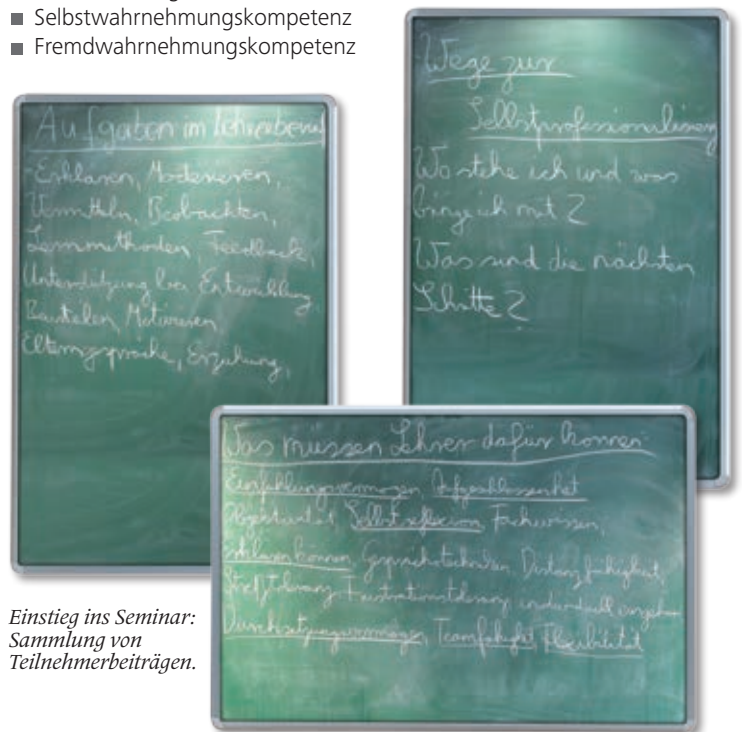 Selbstwahrnehmungskompetenz
Fremdwahrnehmungskompetenz
Aufgaben im Lehrerberuf
- Erklären, Moderieren,
Vermitteln, Beobachten,
Lernmethoden, Feedback,
Unterstützung bei Entwicklung
Motivieren
Elterngespräche, Erziehung,
Wege zur
Selbstprofessionalisierung
Wo stehe ich und was
bringe ich mit?
Was sind die nächsten
Schritte?
Was müssen Lehrer dafür können:
Einfühlungsvermögen, Aufgeschlossenheit
Objektivität, Selbstreflexion, Fachwissen,
erklären können, Gesprächstechniken, Distanzfähigkeit,
Frustrationstoleranz, individuell eingehen
Durchsetzungsvermögen, Teamfähigkeit, Flexibilität
Einstieg ins Seminar:
Sammlung von
Teilnehmerbeiträgen.